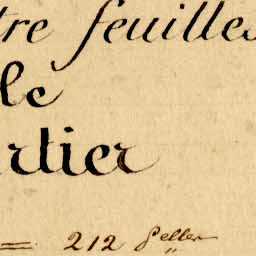 tre feuilles
le
rtier
= 212